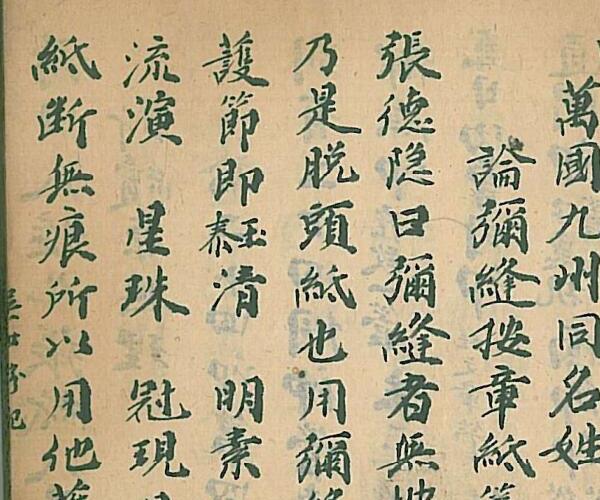 萬國九州同名姓
論彌縫按章紙
張德隐曰彌縫者無
乃是脱頭紙也用彌
護節即泰玉清 明素
流演 星珠 冠現
紙断無痕所以用他